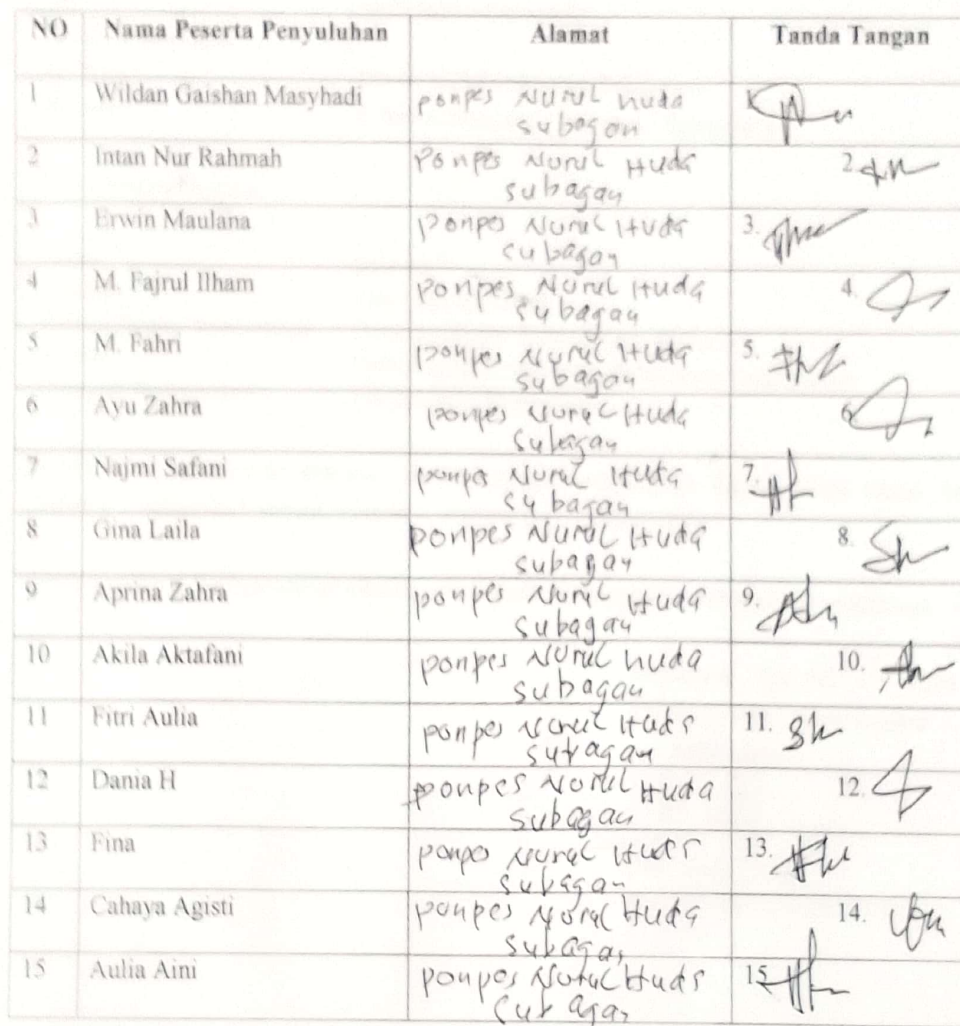 NO Nama Peserta Penyuluhan Alamat Tanda Tangan
1 Wildan Gaishan Masyhadi ponpes Nurul huda
subagan
2 Intan Nur Rahmah Ponpes Nurul Huda 2.
subagan
3 Erwin Maulana Ponpes Nurul Huda 3.
subagan
4 M. Fajrul Ilham Ponpes Nurul Huda 4.
subagan
5 M. Fahri ponpes Nurul Huda 5.
subagan
6 Ayu Zahra ponpes Nurul Huda 6.
subagan
7 Najmi Safani ponpes Nurul Huda 7.
subagan
8 Gina Laila ponpes Nurul Huda 8.
subagan
9 Aprina Zahra ponpes Nurul Huda 9.
subagan
10 Akila Aktafani ponpes Nurul huda 10.
subagan
11 Fitri Aulia ponpes Nurul Huda 11.
subagan
12 Dania H ponpes Nurul Huda 12.
subagan
13 Fina ponpes Nurul Huda 13.
subagan
14 Cahaya Agisti ponpes Nurul Huda 14.
subagan
15 Aulia Aini ponpes Nurul Huda 15
subagan